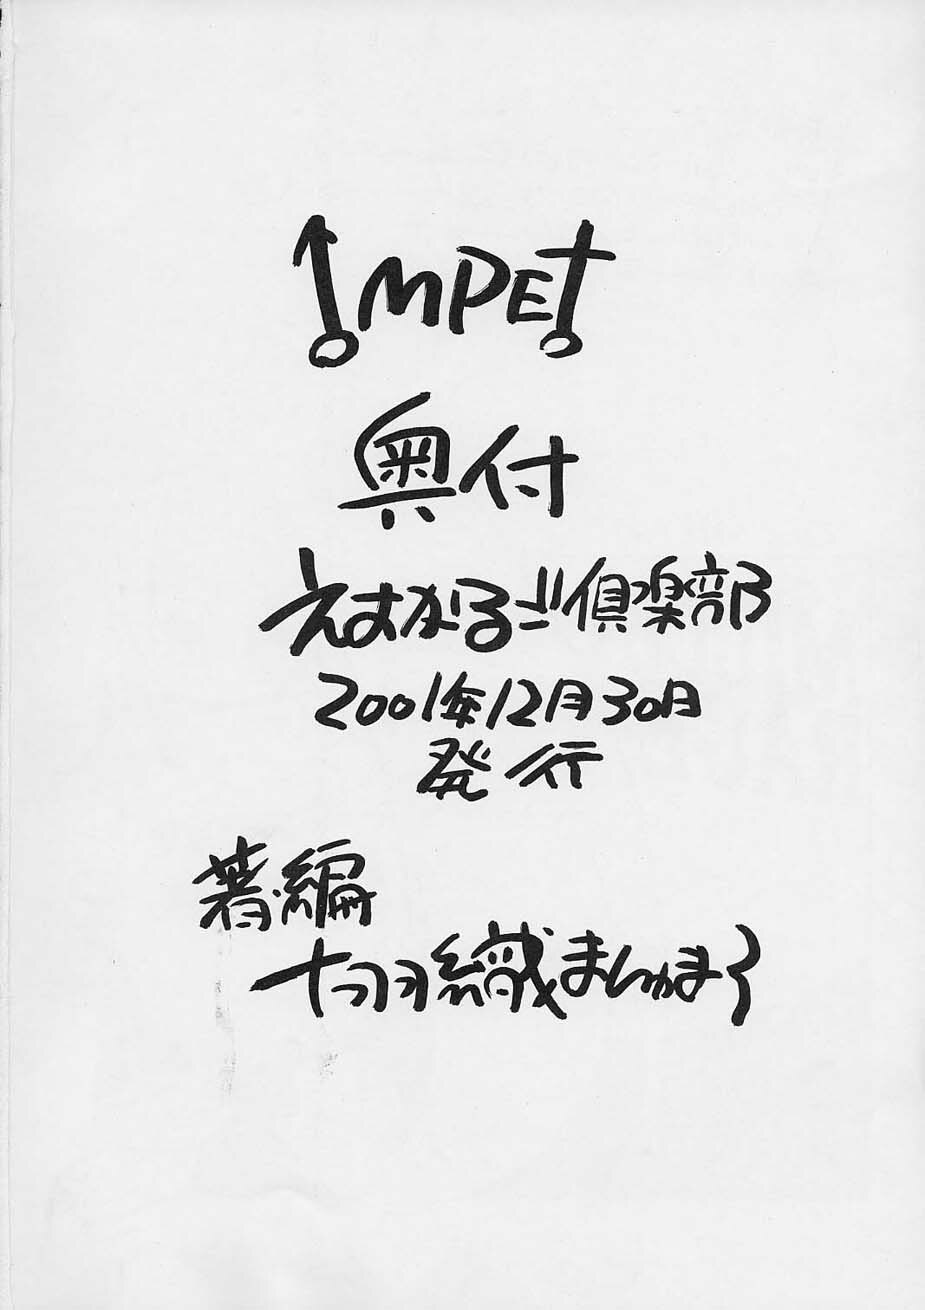 IMPET
奥付
えすかる!!倶楽部
2001年12月30日
発行
著・編
十羽織まんかまる